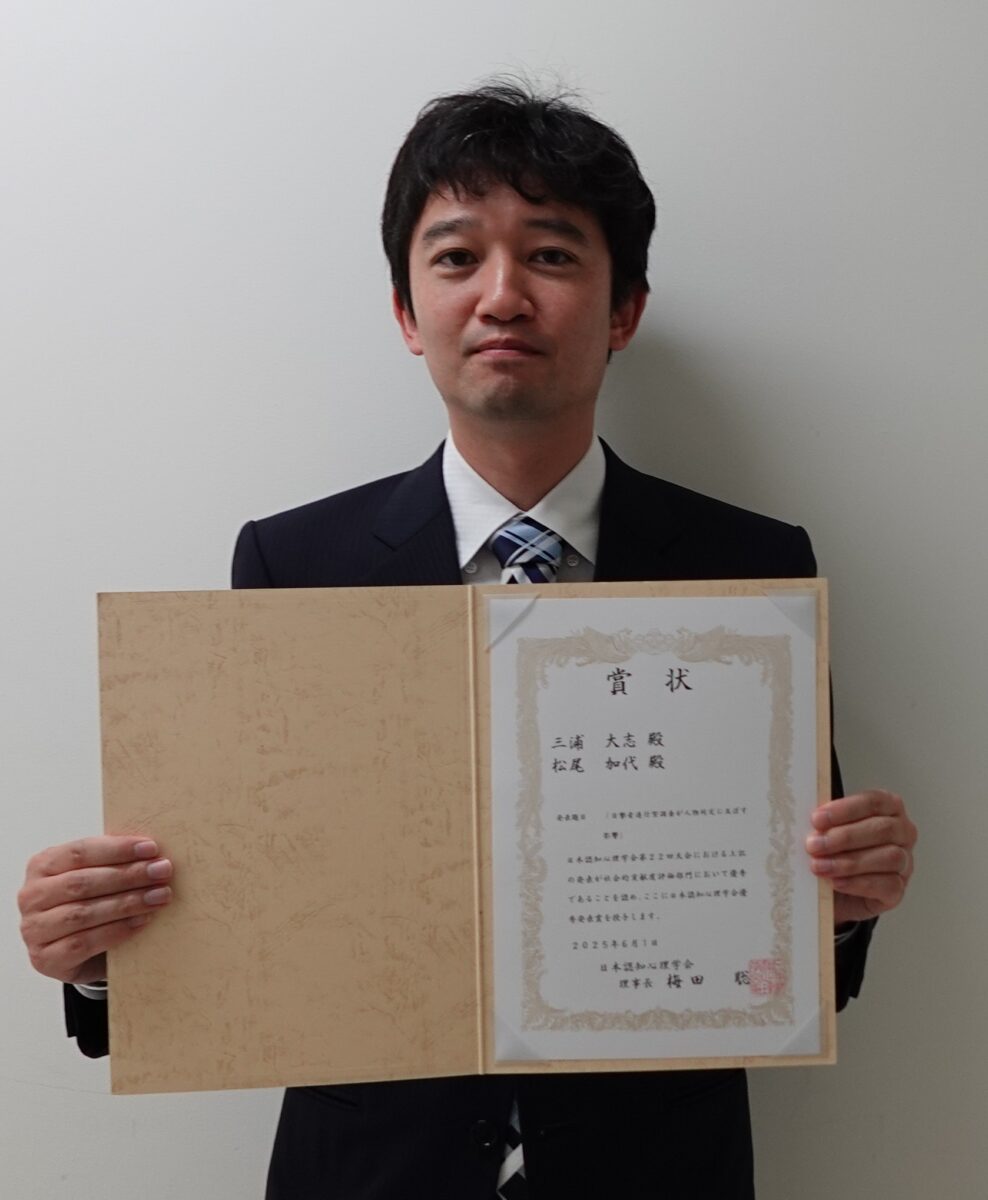 賞 状
三浦 大志 殿
松尾 加代 殿
発表題目 「目撃者遂行型調査が人物同定に及ぼす
影響」
日本認知心理学会第22回大会における上記
の発表が社会的貢献度評価部門において優秀
であることを認め、ここに日本認知心理学会優
秀発表賞を授与します。
2025年6月1日
日本認知心理学会
理事長 梅田 聡